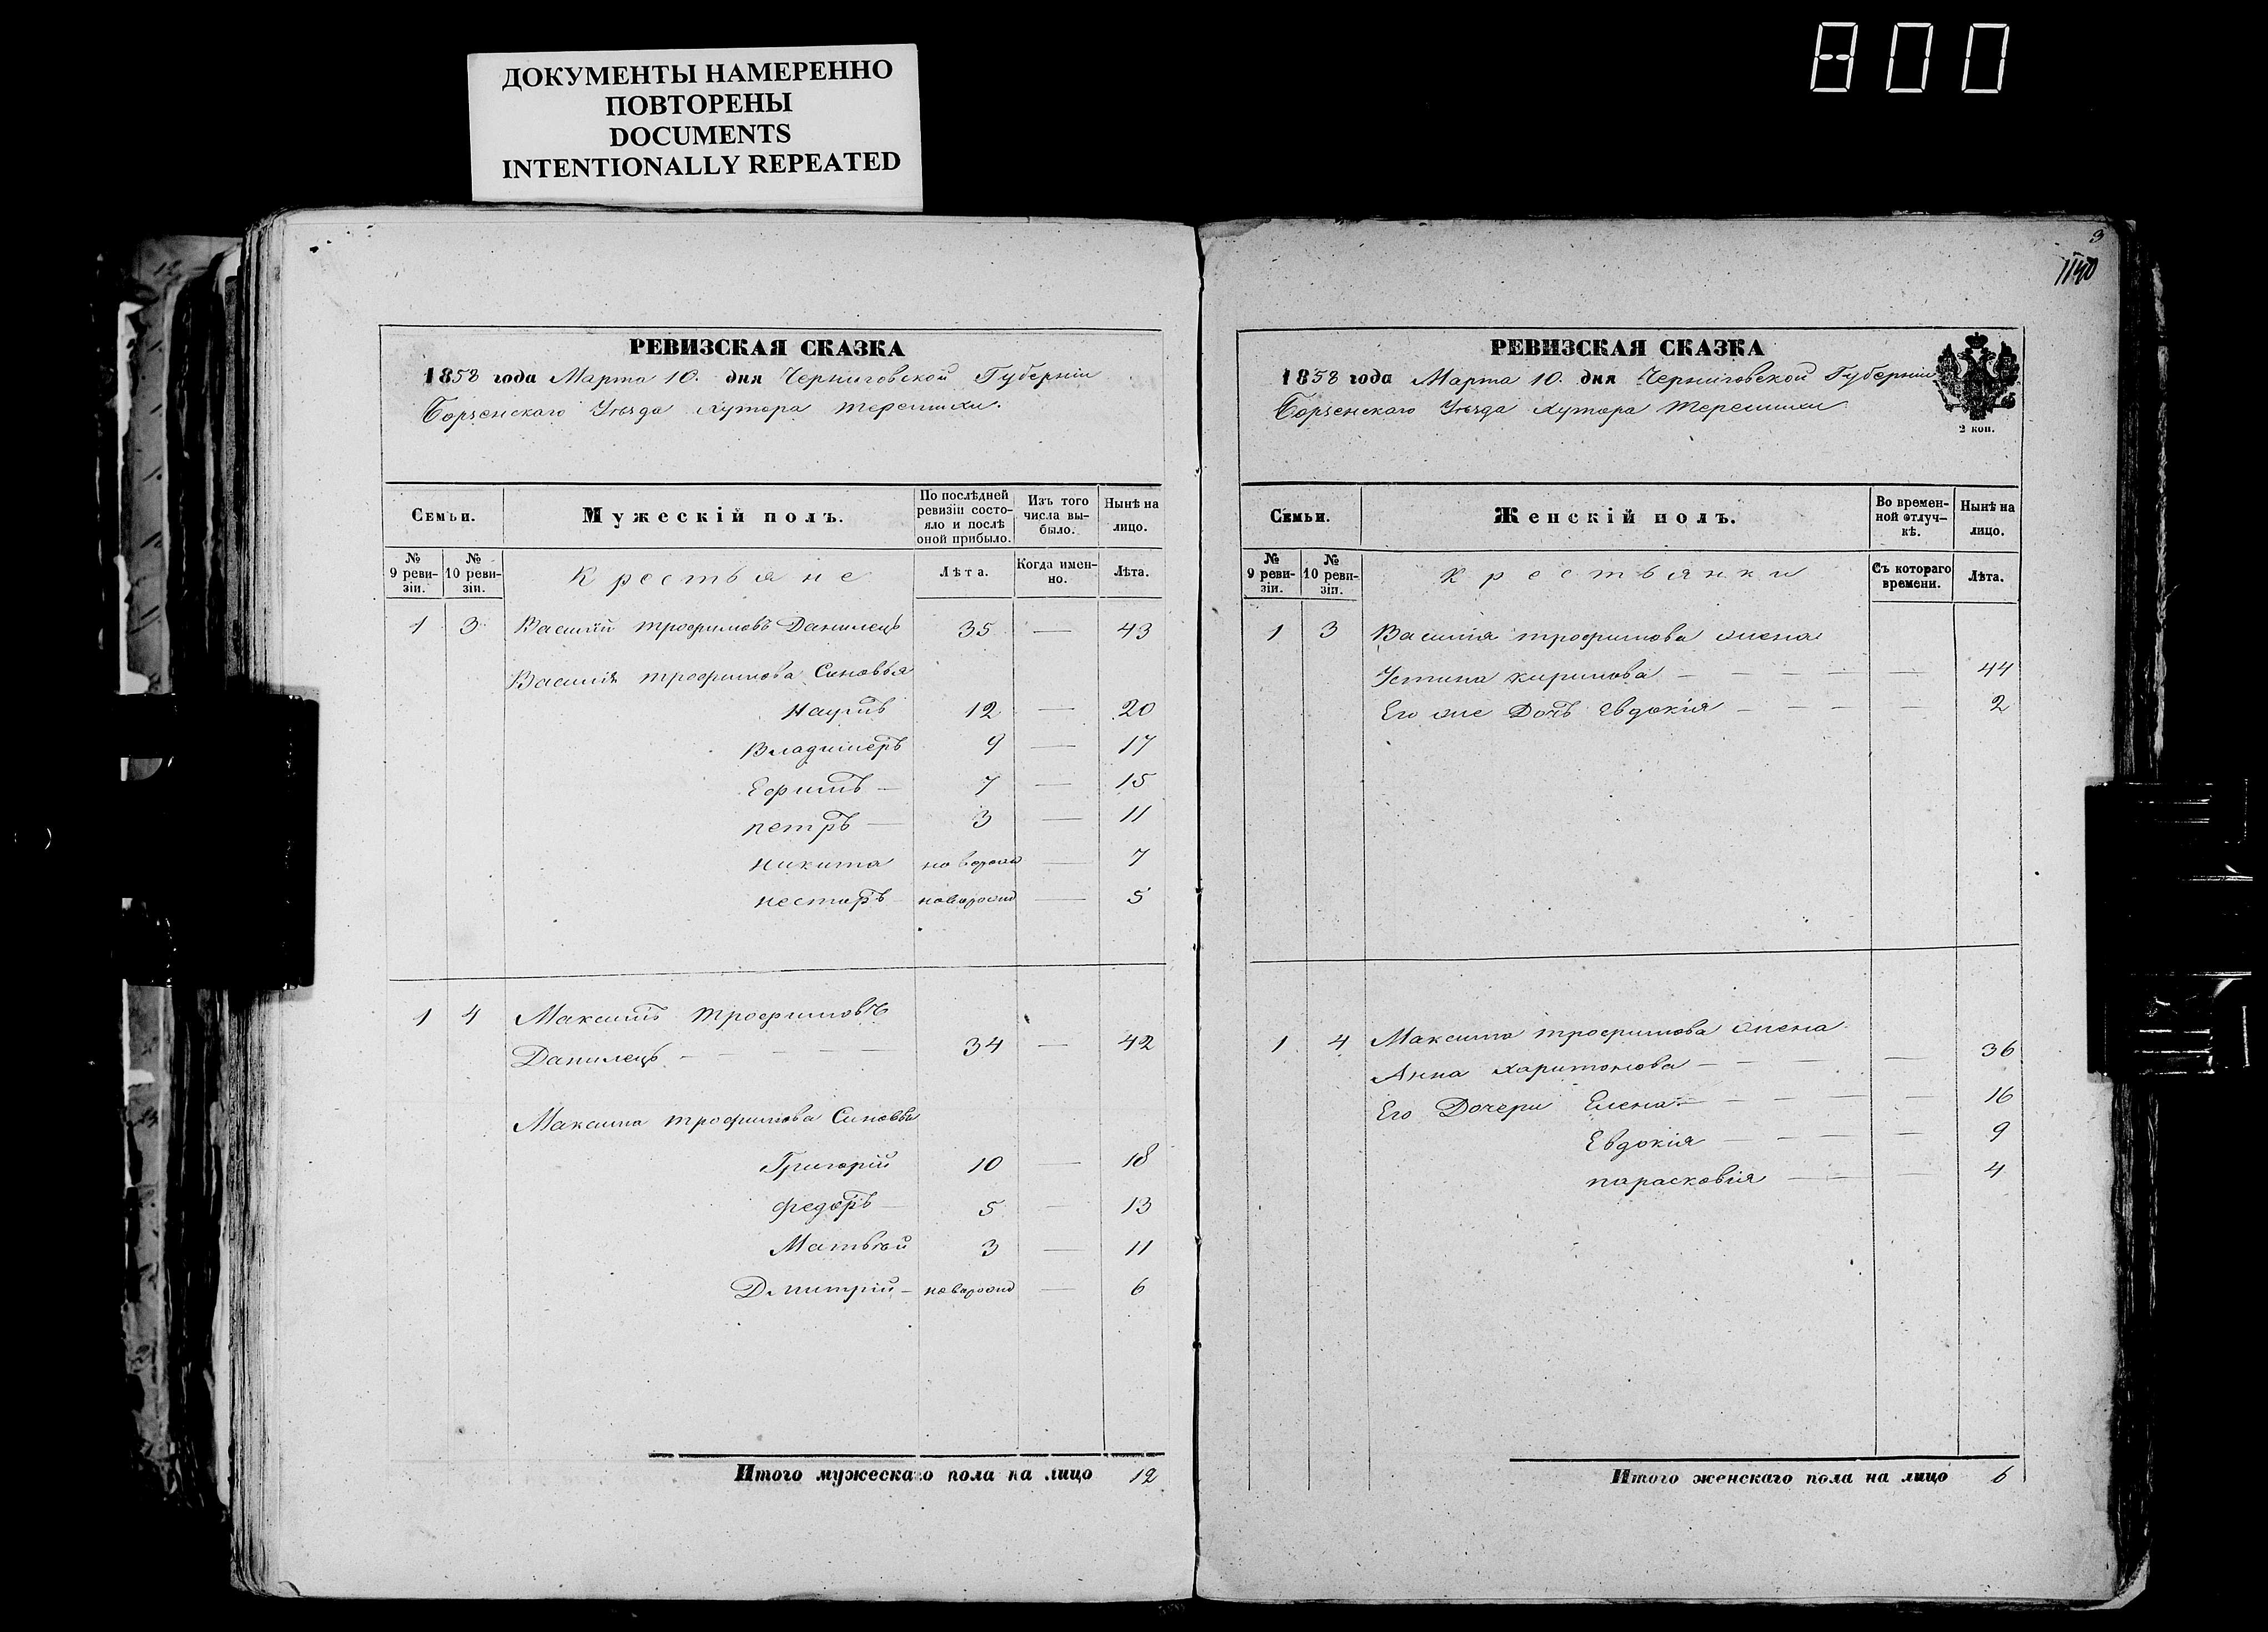 800
ДОКУМЕНТЫ НАМЕРЕННО
ПОВТОРЕНЫ
DOCUMENTS
INTENTIONALLY REPEATED
РЕВИЗСКАЯ СКАЗКА
1858 года Марта 10. дня Черниговской Губерніи
Борзенскаго Уѣзда хутора Терешихи.
Семьи.
Мужескій полъ.
По послѣдней ревизіи состояло и послѣ оной прибыло.
Изъ того числа выбыло.
Нынѣ на лицо.
№ 9 ревизіи.
№ 10 ревизіи.
Крестьяне
Лѣта.
Когда именно.
Лѣта.
1 3 Василій трофимовъ Данилецъ 35 — 43
Василія трофимова Синовья
Наумъ 12 — 20
Владимеръ 9 — 17
Ефимъ — 7 — 15
петръ — 3 — 11
никита наворожд — 7
несторъ наворожд — 5
1 4 Максимъ трофимовъ
Данилецъ — — — 34 — 42
Максима трофимова Синовья
Григорій 10 — 18
федоръ — 5 — 13
Матвѣй 3 — 11
Дмитрій — наворожд — 6
Итого мужескаго пола на лицо 12
3
1140
РЕВИЗСКАЯ СКАЗКА
1858 года Марта 10. дня Черниговской Губерніи
Борзенскаго Уѣзда хутора Терешихи
2 коп.
Семьи.
Женскій полъ.
Во временной отлучкѣ.
Нынѣ на лицо.
№ 9 ревизіи.
№ 10 ревизіи.
Крестьянки
Съ котораго времени.
Лѣта.
1 3 Василія трофимова жена
Устина кирилова — — — — — 44
Его же Дочь Евдокія — — — — 2
1 4 Максима трофимова жена
Анна харитонова — — — — 36
Его Дочери Елена — — — — — 16
Евдокія — — — — 9
парасковія — — — 4
Итого женскаго пола на лицо 6